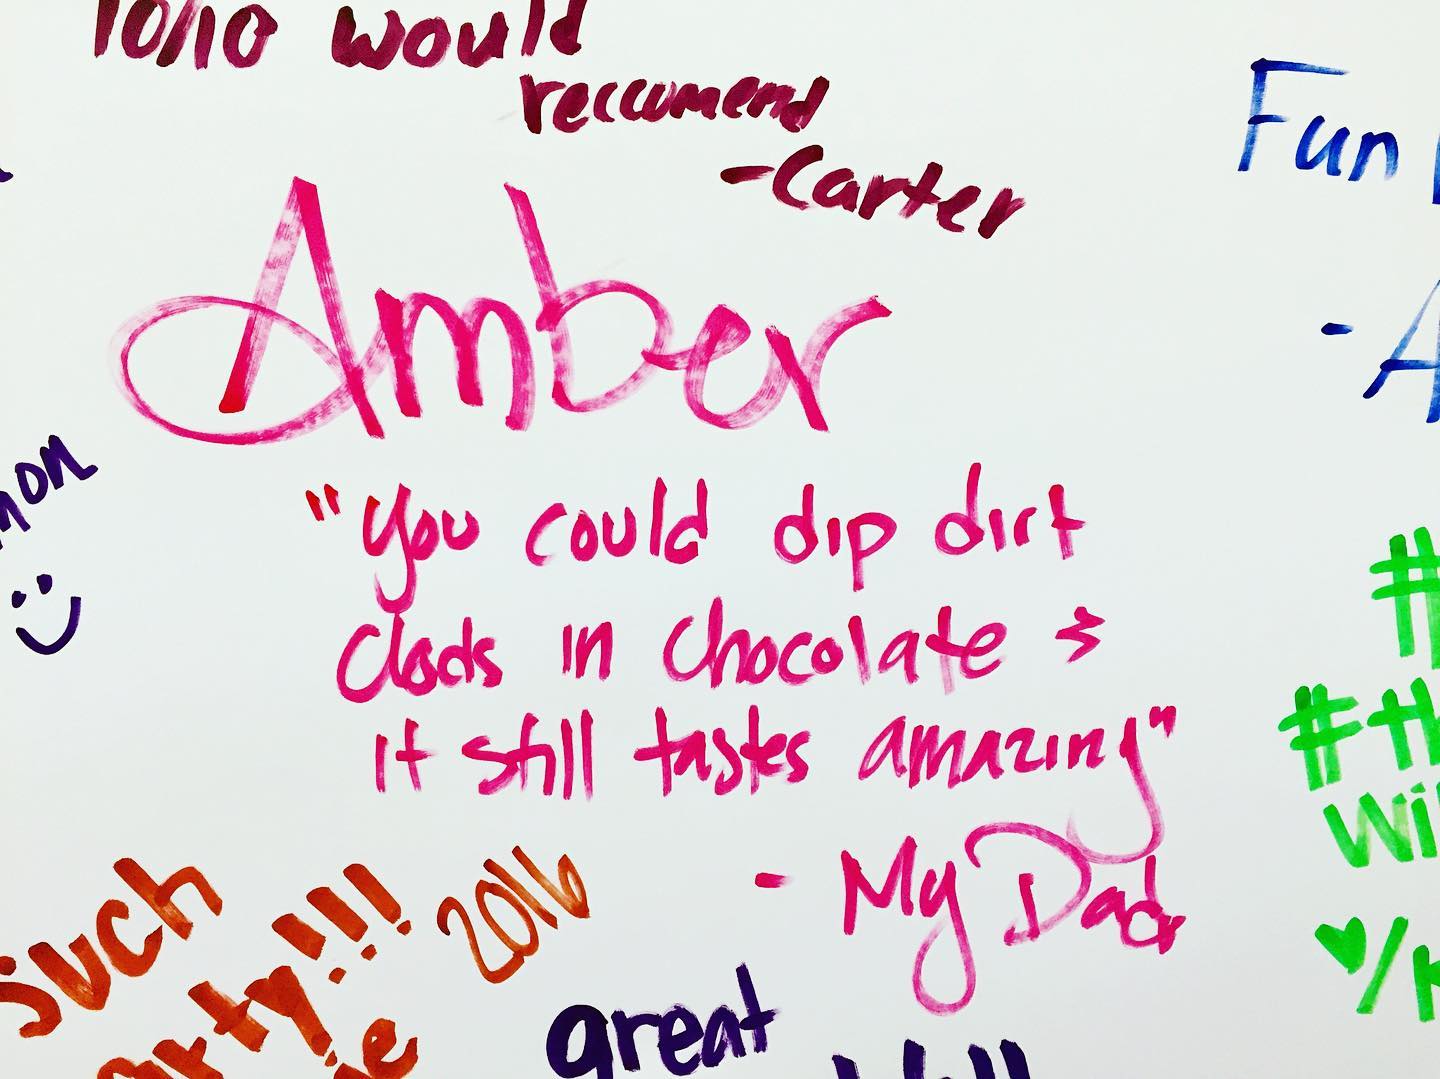 10/10 would
reccomend
-Carter
Fun
- A
Amber
"You could dip dirt
clods in chocolate &
it still tastes amazing"
- My Dad
#
#th
Wi
♥/
such
arty!!!
2016
great